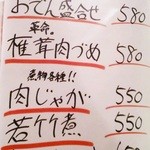 おでん盛合せ 580
革命。
椎茸肉づめ 580
煮物各種!!
肉じゃが 550
若竹煮 550